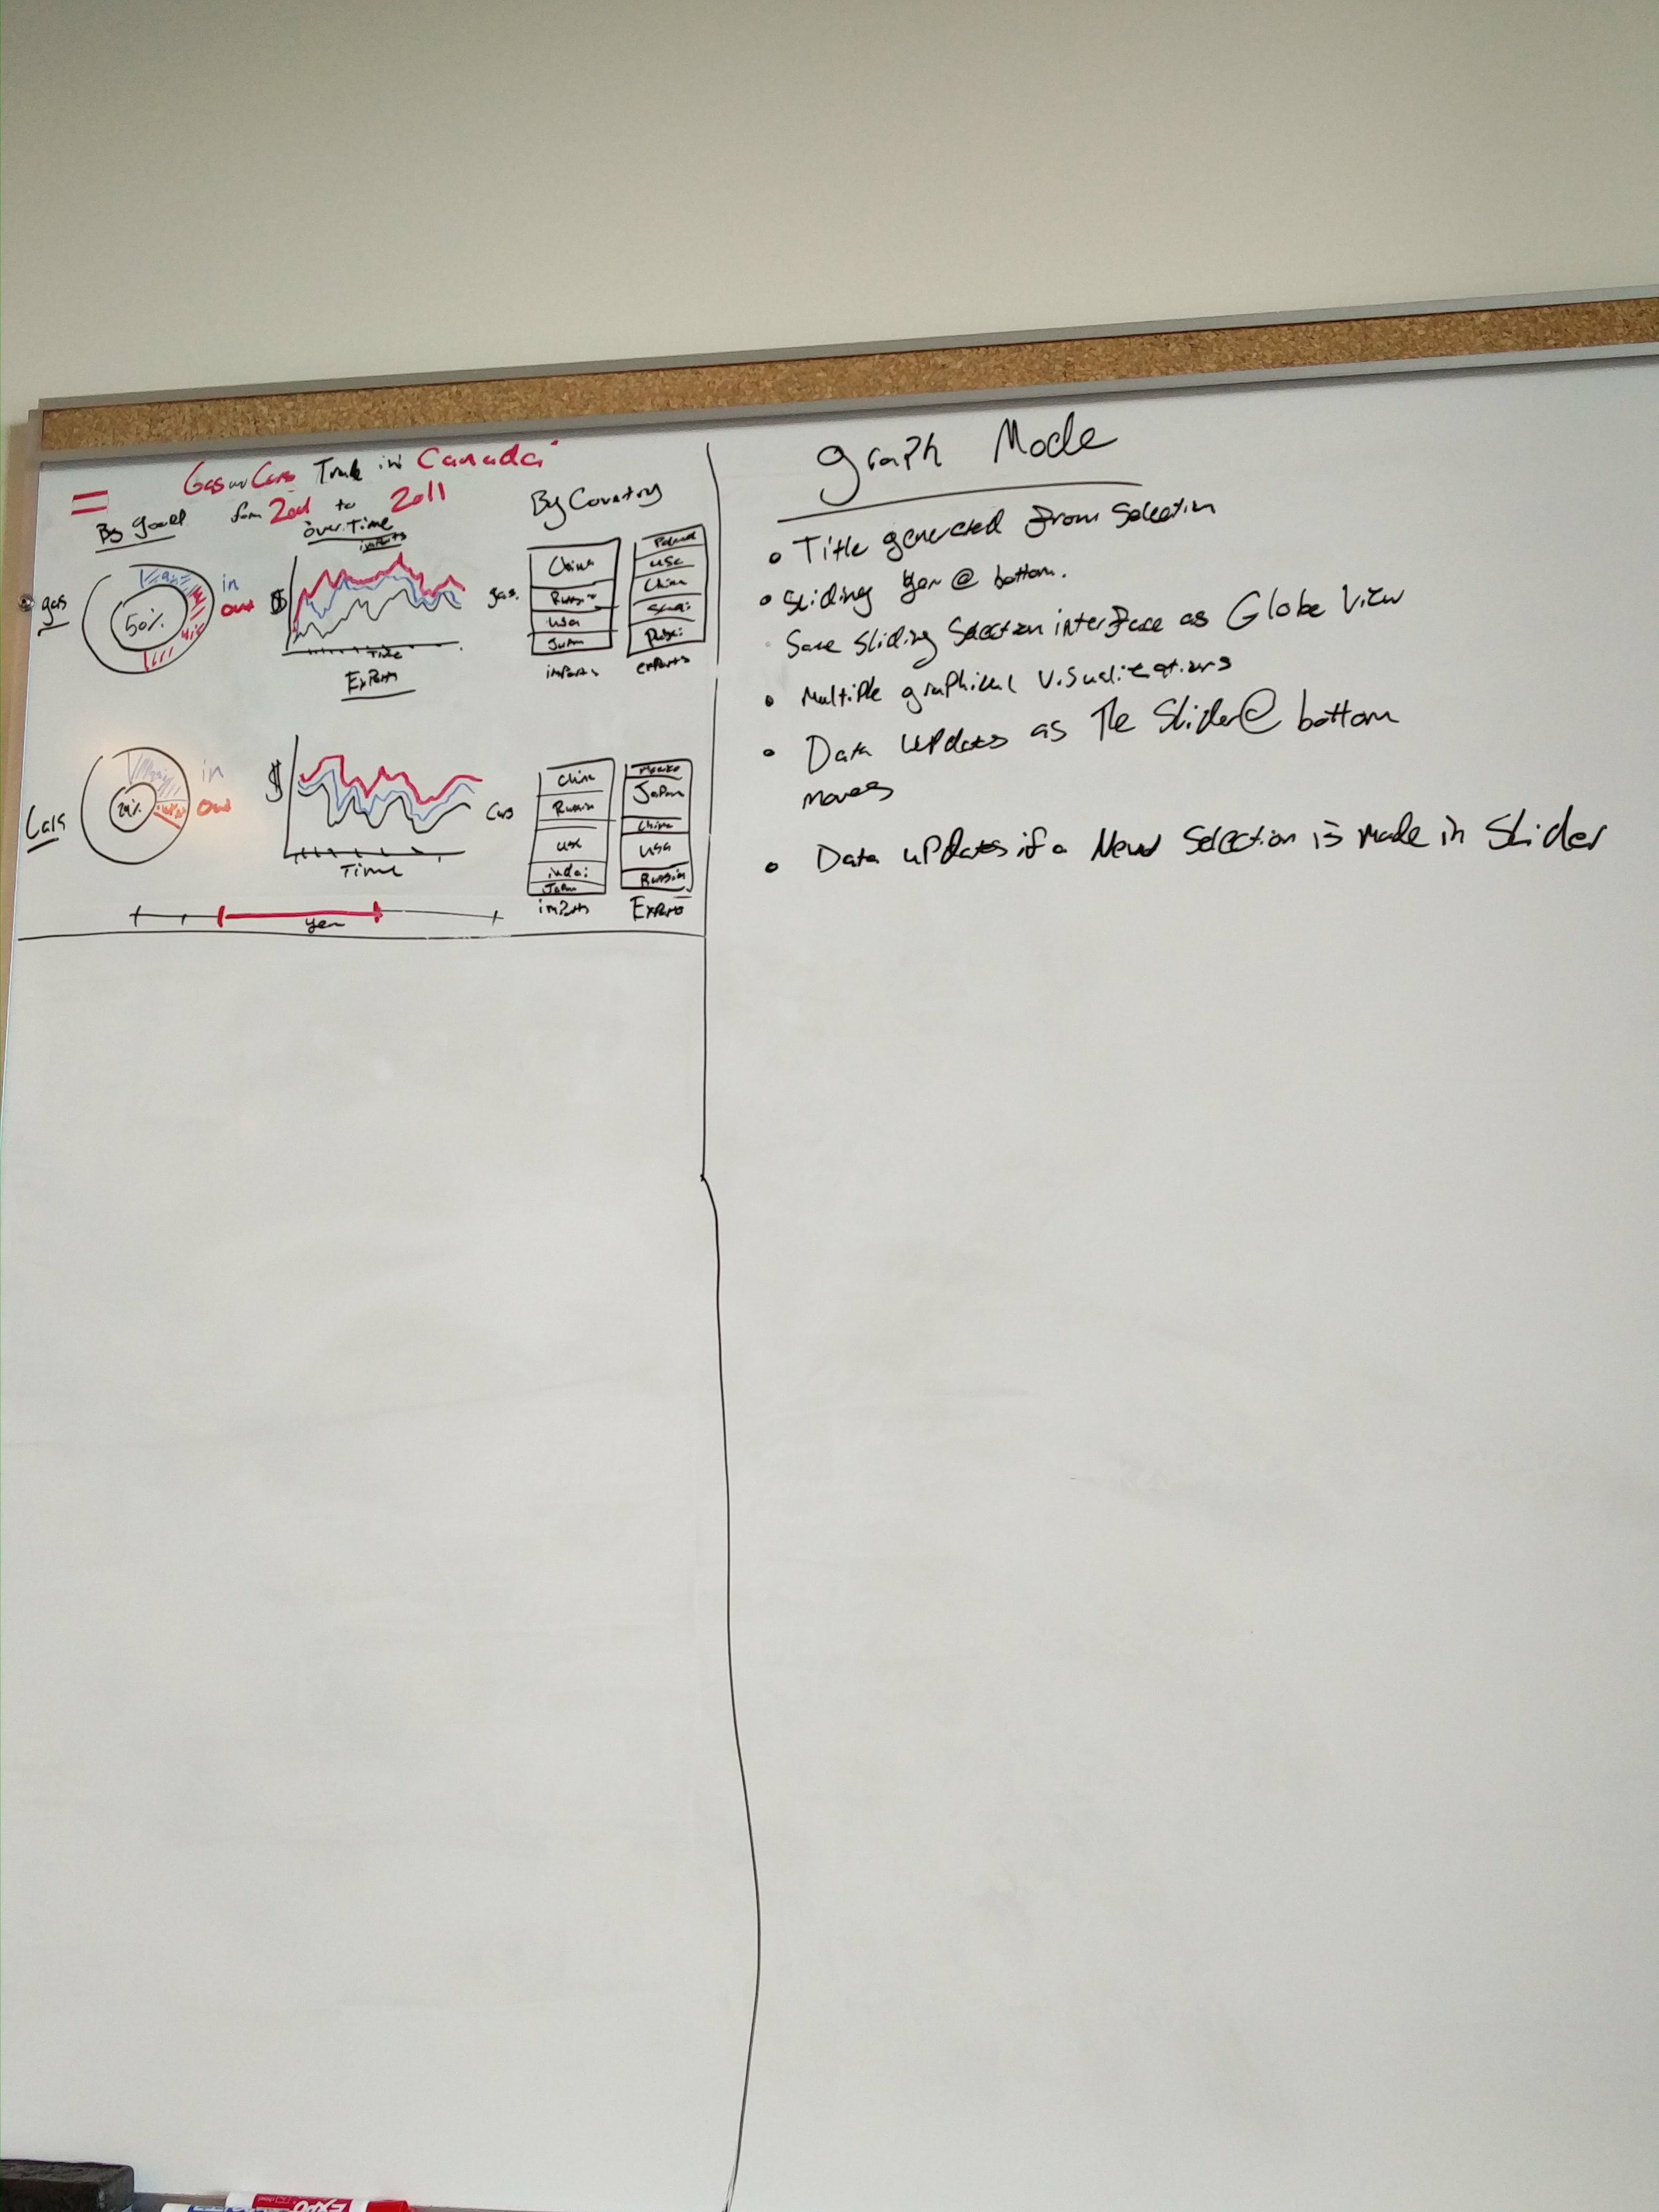 Gas and Cars Trade in Canada
from 2001 to 2011
By good
over Time
By Country
imports
gas
50%
in
out
$
Time
Exports
gas
China
Russia
USA
imports
Poland
USA
China
exports
Cars
in
out
$
Time
Cars
China
Russia
Japan
imports
Mexico
Japan
China
USA
Russia
Exports
year
graph Mode
• Title generated from Selection
• Sliding year @ bottom.
Same Sliding Selection interface as Globe View
• Multiple graphical Visualizations
• Data updates as The Slider @ bottom
moves
• Data updates if a New Selection is made in Slider
EXPO